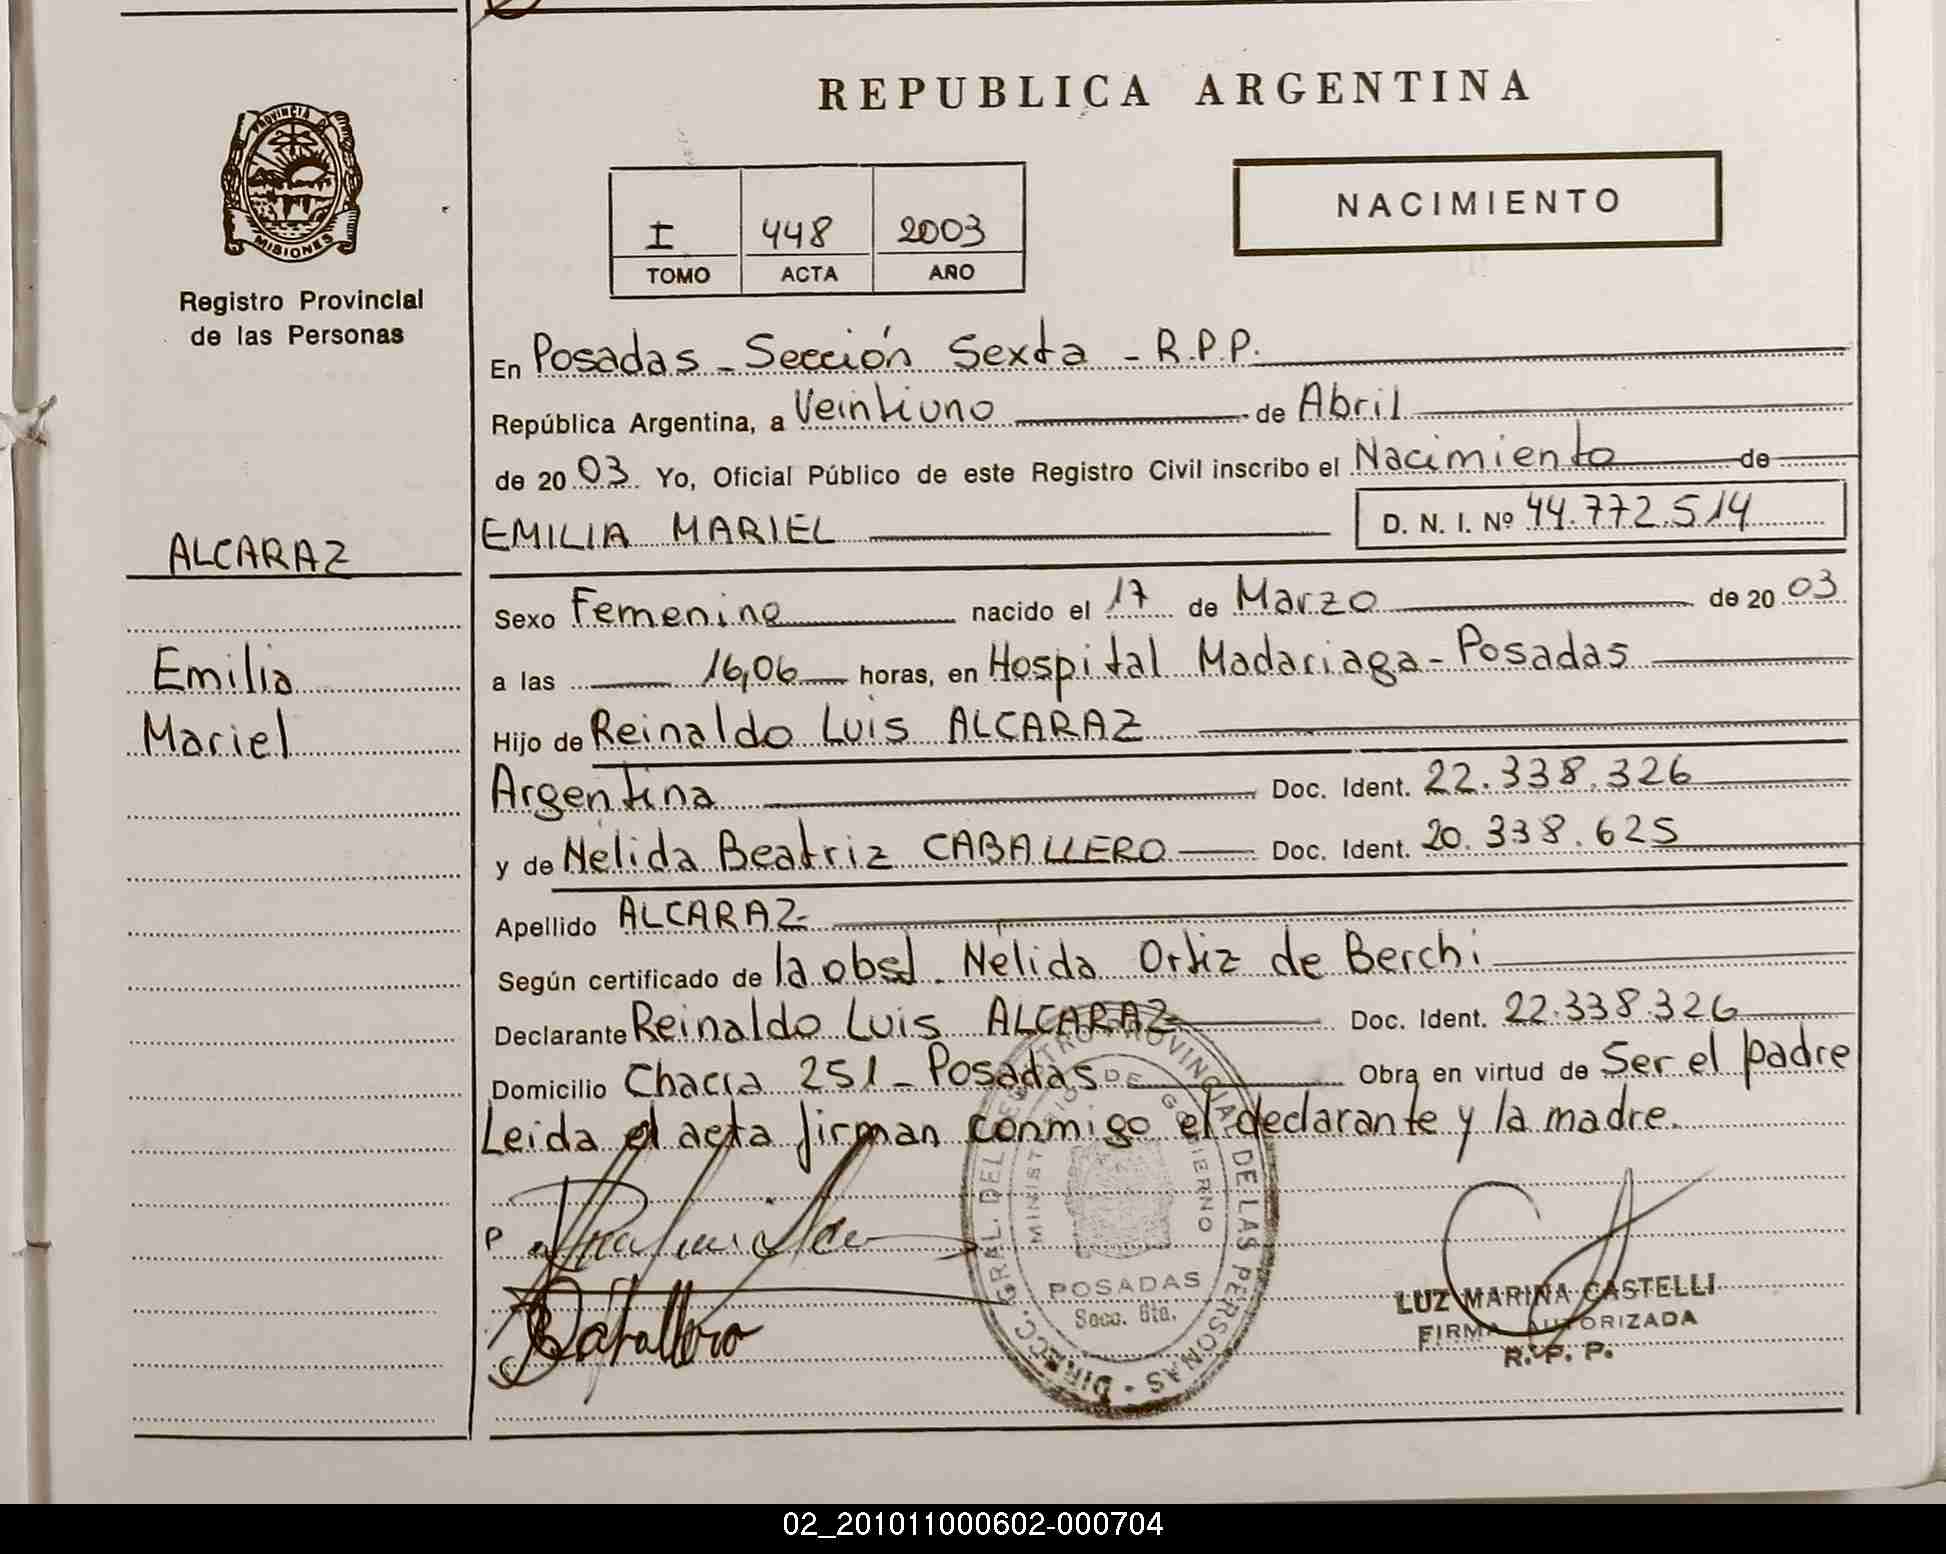 REPUBLICA ARGENTINA
PROVINCIA D
MISIONES
Registro Provincial
de las Personas
NACIMIENTO
I 448 2003
TOMO ACTA AÑO
En Posadas - Sección Sexta - R.P.P.
República Argentina, a Veintiuno de Abril
de 20 03. Yo, Oficial Público de este Registro Civil inscribo el Nacimiento de
EMILIA MARIEL D. N. I. Nº 44.772.514
ALCARAZ
Emilia
Mariel
Sexo Femenino nacido el 17 de Marzo de 20 03
a las 16,06 horas, en Hospital Madariaga - Posadas
Hijo de Reinaldo Luis ALCARAZ
Argentina Doc. Ident. 22.338.326
y de Nélida Beatriz CABALLERO Doc. Ident. 20.338.625
Apellido ALCARAZ
Según certificado de la obst. Nélida Ortiz de Berchi
Declarante Reinaldo Luis ALCARAZ Doc. Ident. 22.338.326
Domicilio Chacra 251 - Posadas Obra en virtud de Ser el padre
Leida el acta firman conmigo el declarante y la madre.
DIRECC. GRAL. DEL REGISTRO PROVINCIAL DE LAS PERSONAS
MINISTERIO DE GOBIERNO
POSADAS
Secc. 6ta.
P
Caballero
LUZ MARINA CASTELLI
FIRMA AUTORIZADA
R. P. P.
02_201011000602-000704